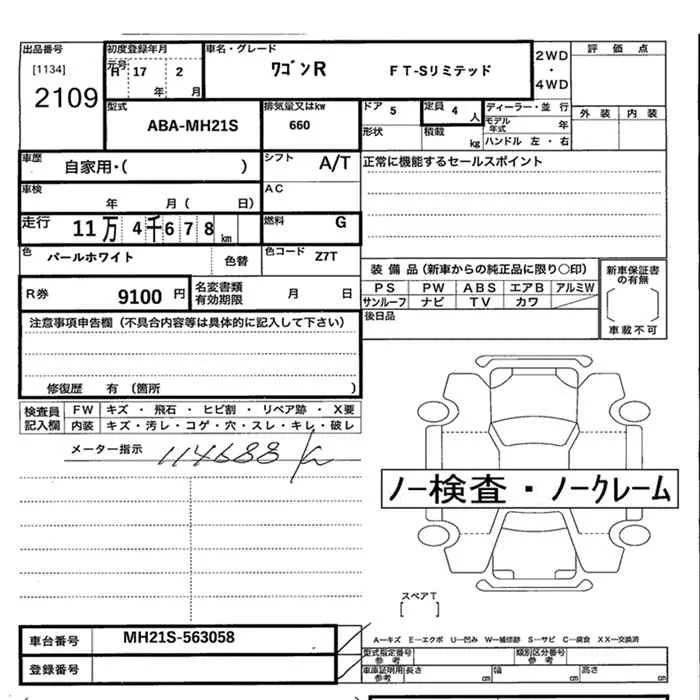 出品番号
[1134]
2109
初度登録年月
元号
H 17 2
年 月
車名・グレード
ワゴンR FT-Sリミテッド
2WD
・
4WD
評価点
外装 内装
型式
ABA-MH21S
排気量又はkw
660
ドア 5
定員 4 人
形状
積載 kg
ディーラー・並行
モデル年式 年
ハンドル 左・右
車歴
自家用・( )
シフト A/T
正常に機能するセールスポイント
車検
年 月( 日)
AC
走行 11万4千678km
燃料 G
色
パールホワイト 色替
色コード Z7T
R券 9100円
名変書類
有効期限 月 日
装備品(新車からの純正品に限り○印)
PS PW ABS エアB アルミW
サンルーフ ナビ TV カワ
新車保証書
の有無
車載不可
後日品
注意事項申告欄(不具合内容等は具体的に記入して下さい)
修復歴 有(箇所 )
検査員
記入欄
FW キズ・飛石・ヒビ割・リペア跡・X要
内装 キズ・汚レ・コゲ・穴・スレ・キレ・破レ
メーター指示 114688 km
ノー検査・ノークレーム
スペアT
[ ]
車台番号 MH21S-563058
登録番号
A―キズ E―エクボ U―凹み W―補修跡 S―サビ C―腐食 XX―交換済
型式指定番号
参考
類別区分番号
参考
車庫証明用
参考
長さ cm 幅 cm 高さ cm